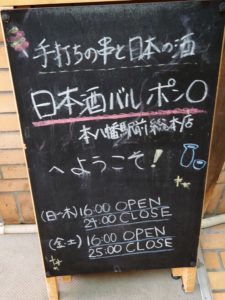 手打ちの串と日本の酒
日本酒バル ポンO
本八幡駅前総本店
へようこそ!
(日~木) 16:00 OPEN
24:00 CLOSE
(金・土) 16:00 OPEN
25:00 CLOSE